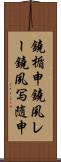 鏡楯申鏡風し
ー鏡風写随申